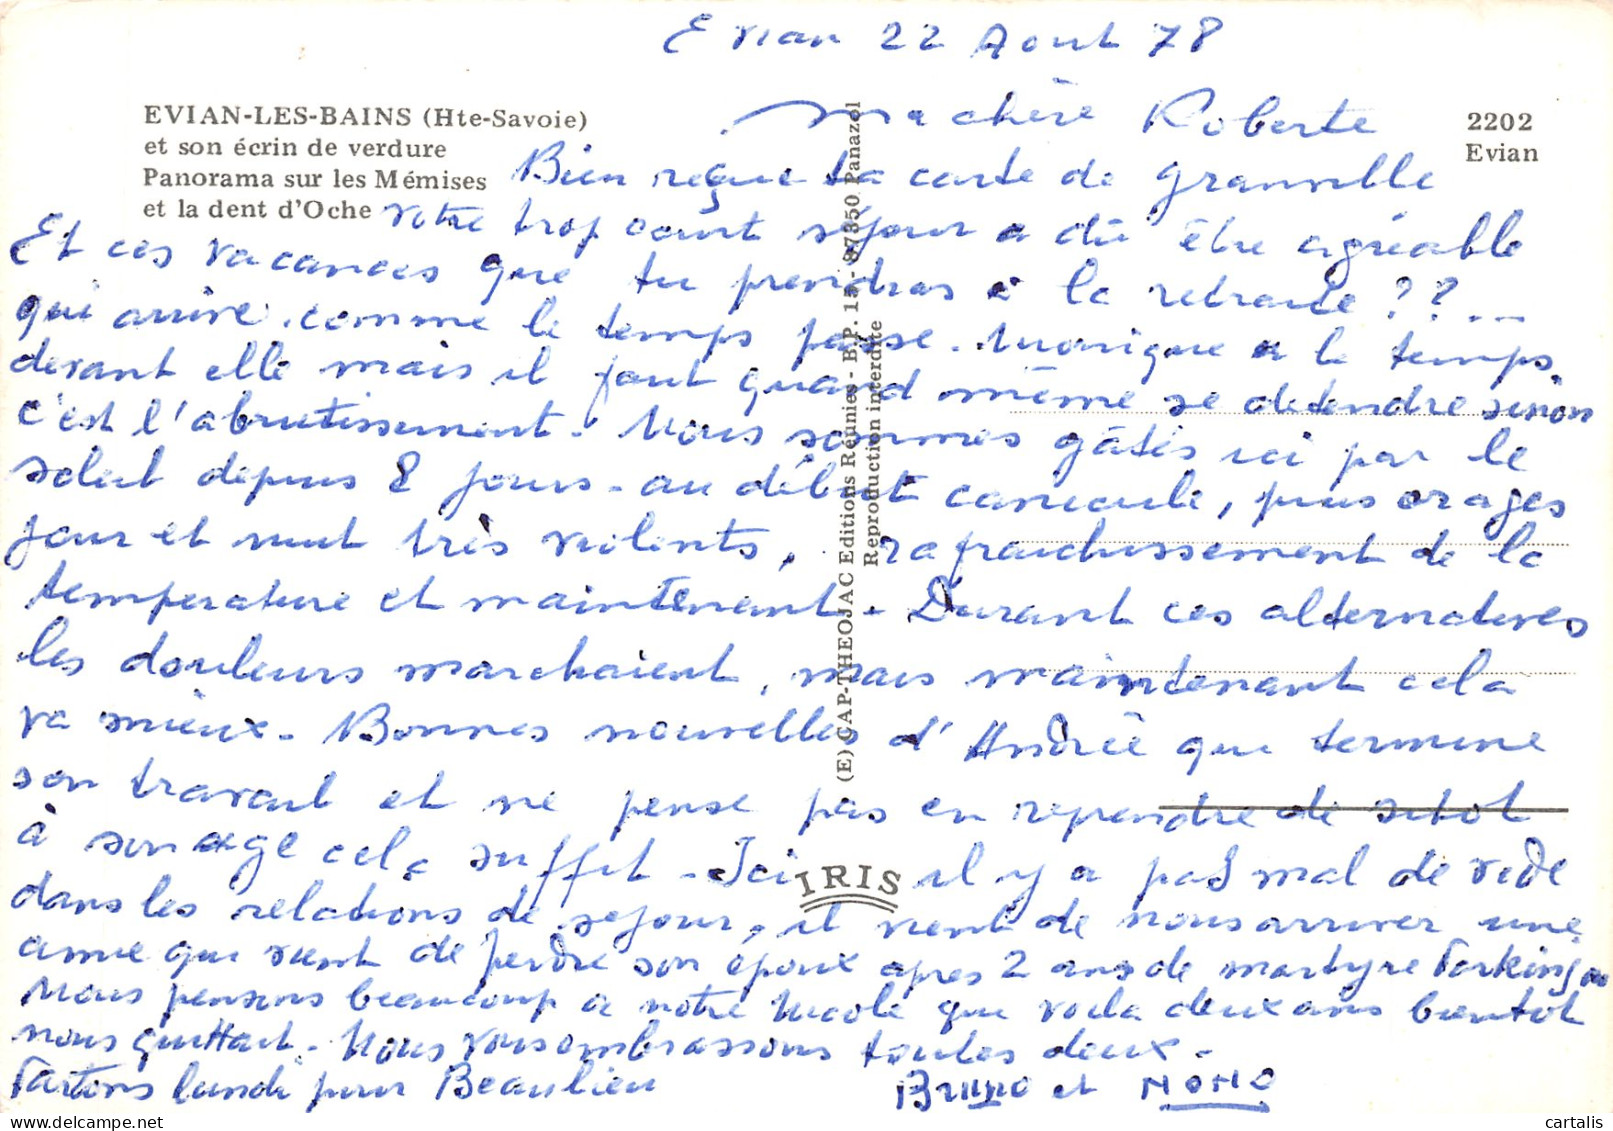 Evian 22 Aout 78
EVIAN-LES-BAINS (Hte-Savoie)
et son écrin de verdure
Panorama sur les Mémises
et la dent d'Oche
2202
Evian
Ma chère Roberte
Bien reçue ta carte de Granville
votre trop court séjour a dû être agréable
Et ces vacances que tu prendras à la retraite ??...
qui arrive. comme le temps passe. Monique a le temps
devant elle mais il faut quand même se detendre sinon
c'est l'abrutissement. Nous sommes gâtés ici par le
soleil depuis 8 jours - au début canicule, puis orages
jour et nuit très violents, rafraichissement de la
temperature et maintenant. Durant ces alternatives
les douleurs marchaient, mais maintenant cela
va mieux. Bonnes nouvelles d'Andrée que termine
son travail et ne pense pas en reprendre de sitot
à son age cela suffit. Ici il y a pas mal de vide
dans les relations de sejour, il vient de nous arriver une
amie qui vient de perdre son epoux apres 2 ans de martyre Parkinson
Nous pensons beaucoup a notre Nicole que voila deux ans bientot
nous quittait. Nous vous embrassons toutes deux.
Partons lundi pour Beaulieu
Bruno et NONO
(E) CAP-THEOJAC Editions Réunies - B.P. 15 - 87350 Panazol
Reproduction interdite
IRIS
cartalis
www.delcampe.net